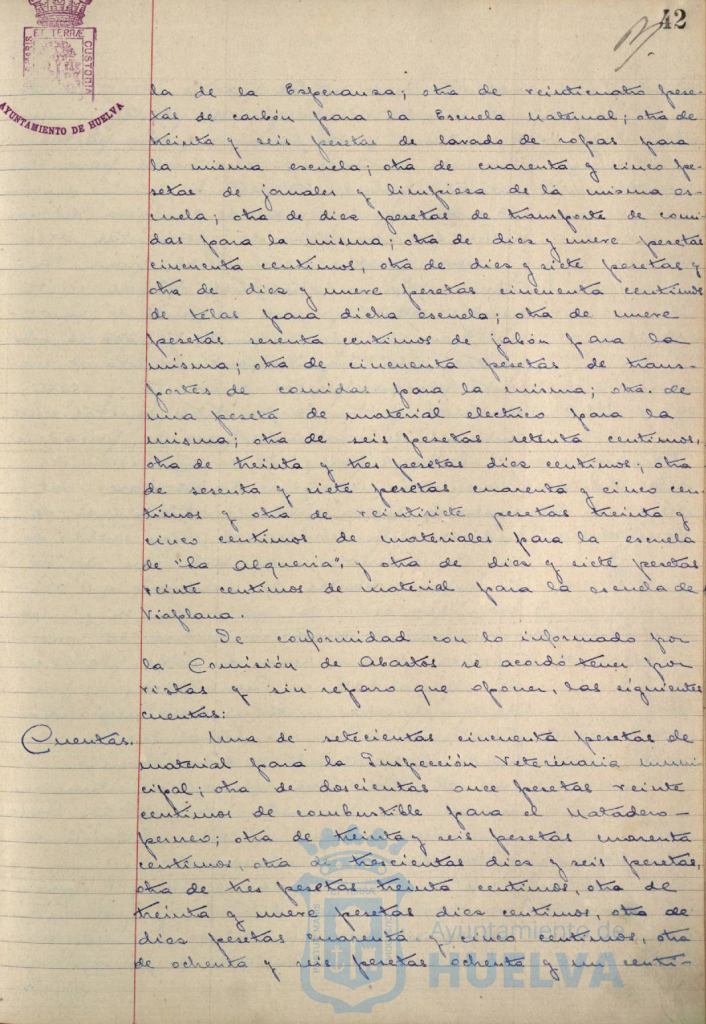 42
PORTUS MARIS
ET TERRÆ
CUSTODIA
AYUNTAMIENTO DE HUELVA
la de la Esperanza; otra de veinticuatro pese-
tas de carbón para la Escuela Maternal; otra de
treinta y seis pesetas de lavado de ropas para
la misma escuela; otra de cuarenta y cinco pe-
setas de jornales y limpiesa de la misma es-
cuela; otra de dies pesetas de transporte de comi-
das para la misma; otra de dies y nueve pesetas
cincuenta centimos, otra de dies y siete pesetas y
otra de dies y nueve pesetas cincuenta centimos
de telas para dicha escuela; otra de nueve
pesetas sesenta centimos de jabón para la
misma; otra de cincuenta pesetas de trans-
portes de comidas para la misma; otra de
una peseta de material electrico para la
misma; otra de seis pesetas setenta centimos,
otra de treinta y tres pesetas dies centimos; otra
de sesenta y siete pesetas cuarenta y cinco cen-
timos y otra de veintisiete pesetas treinta y
cinco centimos de materiales para la escuela
de "La Alqueria", y otra de dies y siete pesetas
veinte centimos de material para la escuela de
Viaplana.
De conformidad con lo informado por
la Comisión de Abastos se acordó tener por
vistas y sin reparo que oponer, las siguientes
cuentas:
Cuentas. Una de setecientas cincuenta pesetas de
material para la Inspección Veterinaria muni-
cipal; otra de doscientas once pesetas veinte
centimos de combustible para el Matadero-
perneo; otra de treinta y seis pesetas cuarenta
centimos, otra de trescientas dies y seis pesetas,
otra de tres pesetas treinta centimos, otra de
treinta y nueve pesetas dies centimos, otra de
dies pesetas cuarenta y cinco centimos, otra
de ochenta y seis pesetas ochenta y un centi-
Ayuntamiento de
HUELVA